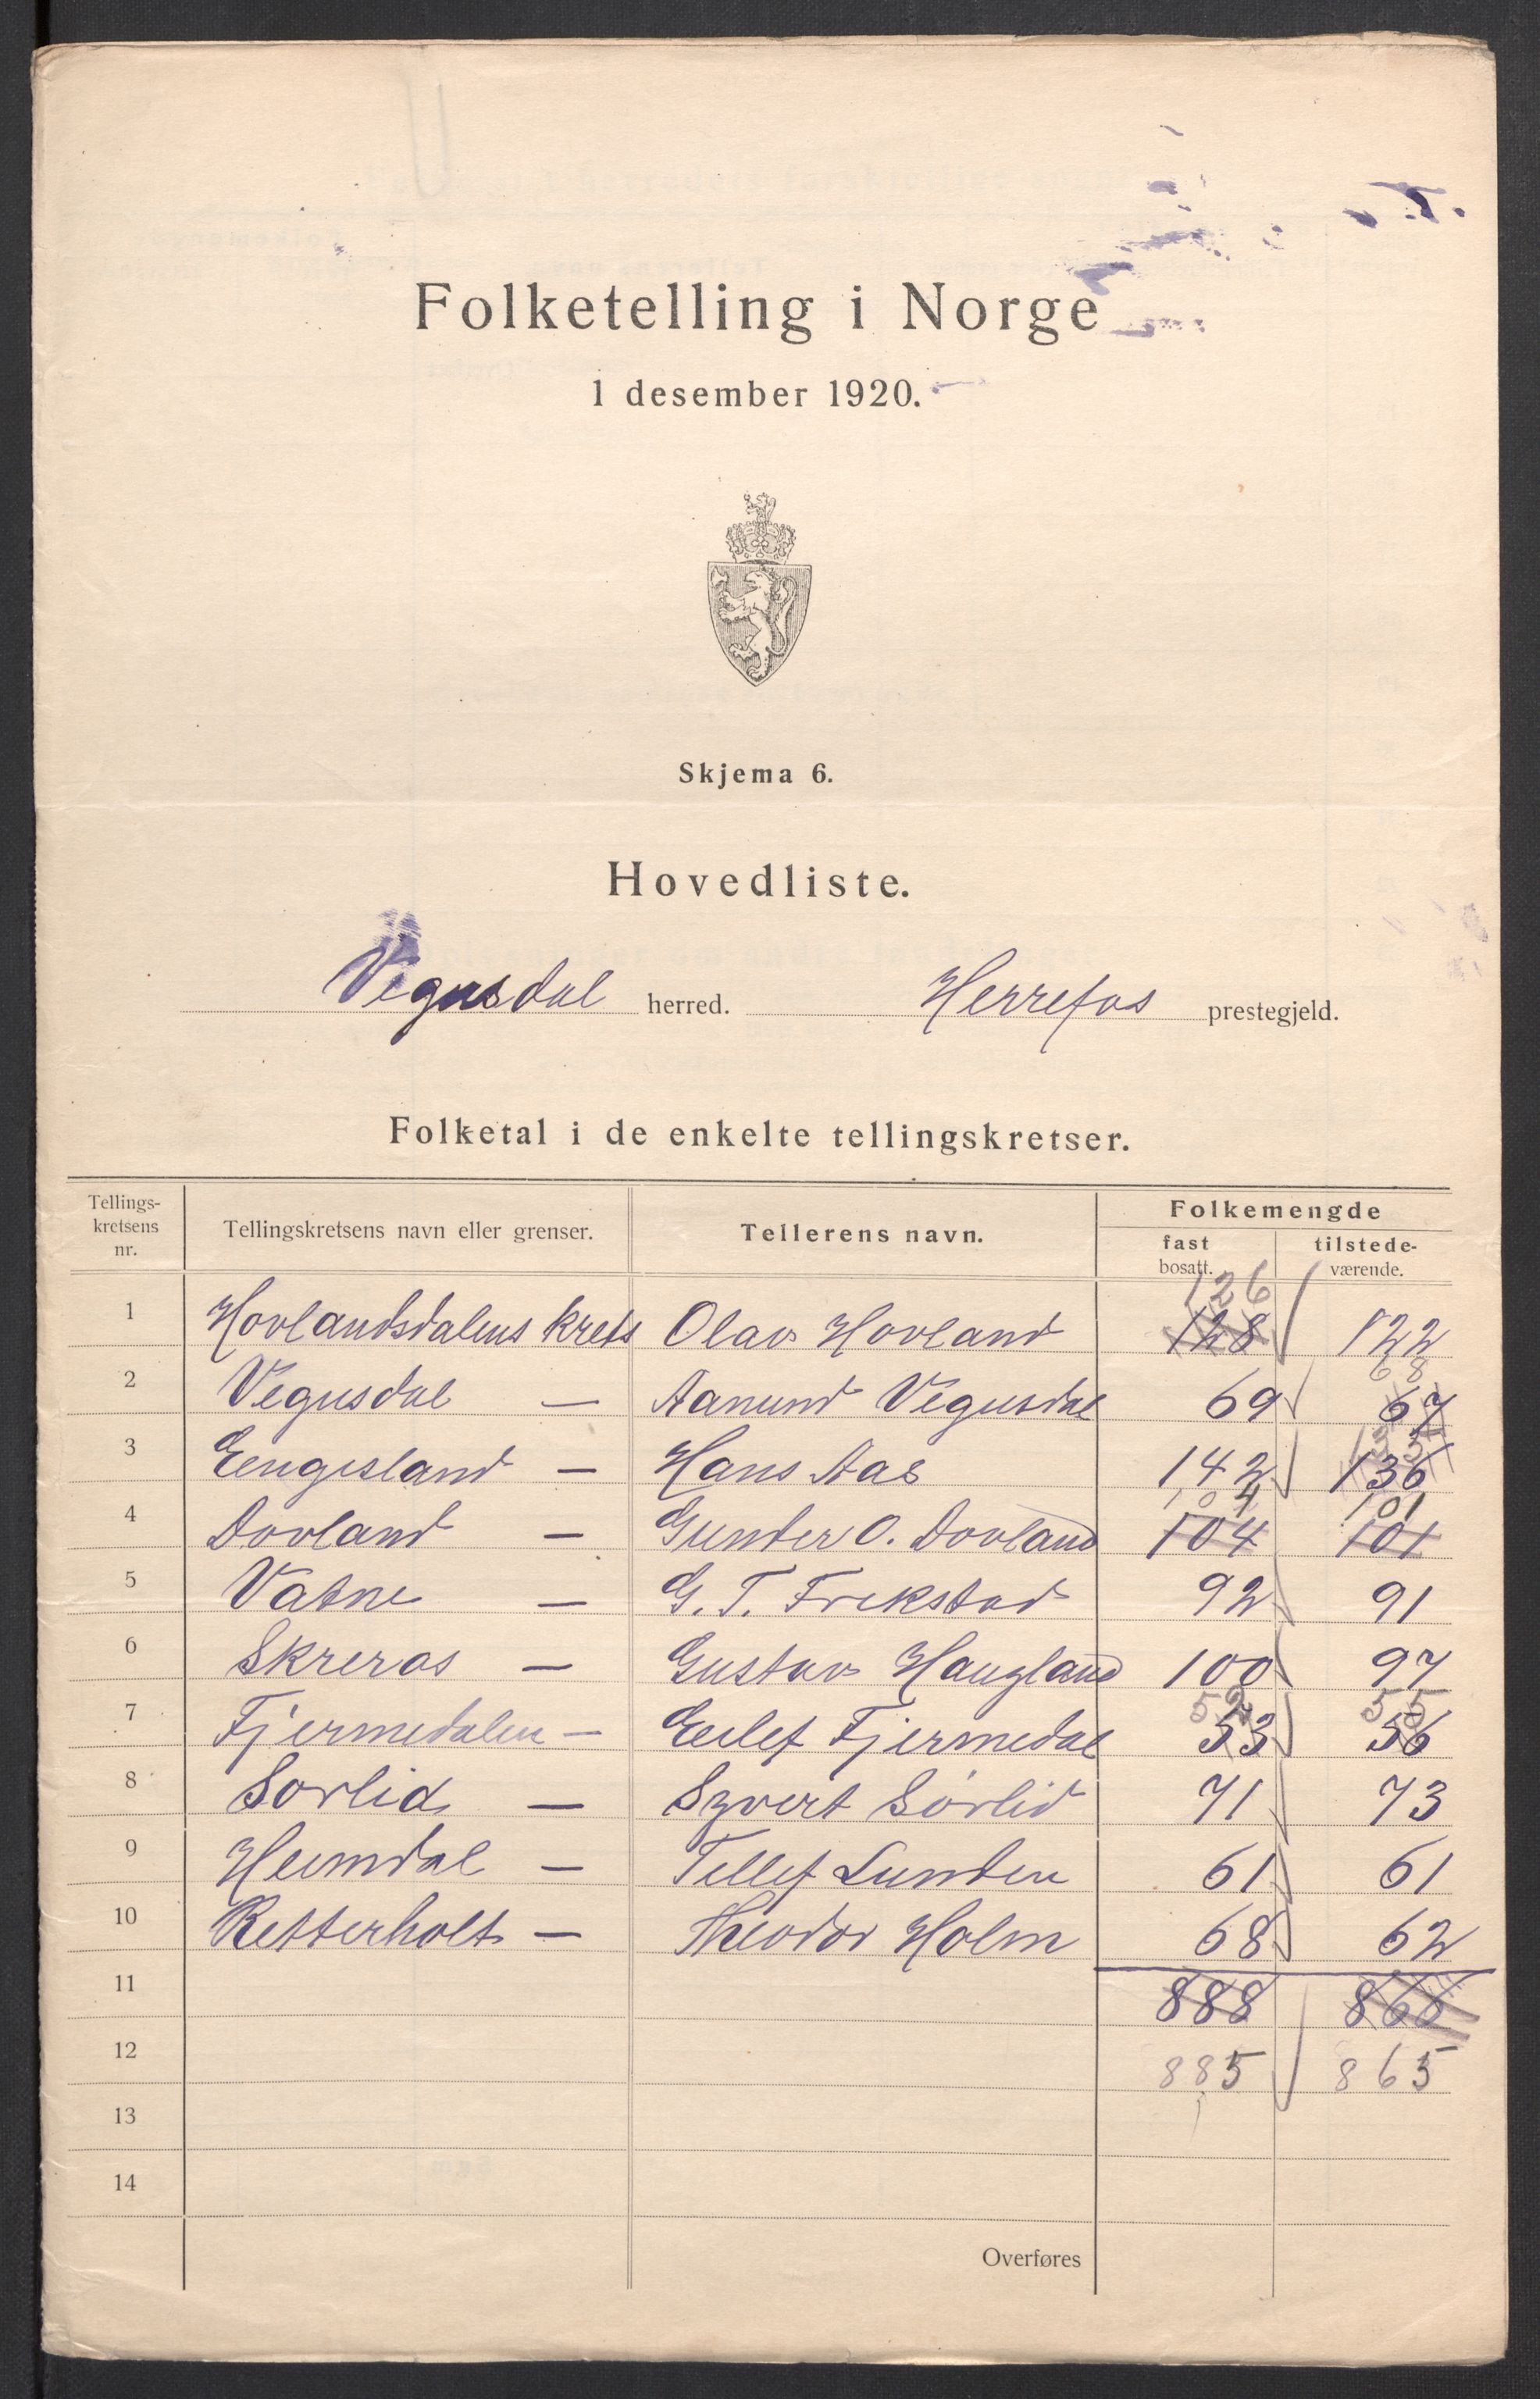 Folketelling i Norge
1 desember 1920.
Skjema 6.
Hovedliste.
Vegusdal herred. Herrefos prestegjeld.
Folketal i de enkelte tellingskretser.
Tellings-
kretsens
nr.
Tellingskretsens navn eller grenser.
Tellerens navn.
Folkemengde
fast
bosatt.
tilstede-
værende.
126
1 Hovlandsdalens krets Olav Hovland 128 122
68
2 Vegusdal — Aanund Vegusdal 69 67
135
3 Eengesland — Hans Aas 142 136
104 101
4 Dovland — Gunder O. Dovland 104 101
5 Vatne — G. T. Frekstad 92 91
6 Skreros — Gustav Haugland 100 97
52 55
7 Fjermedalen — Eilef Fjermedal 53 56
8 Sørlid — Syvert Sørlid 71 73
9 Heimdal — Tellef Lunden 61 61
10 Retterholt — Theodor Holm 68 62
11 888 866
12 885 865
13
14
Overføres